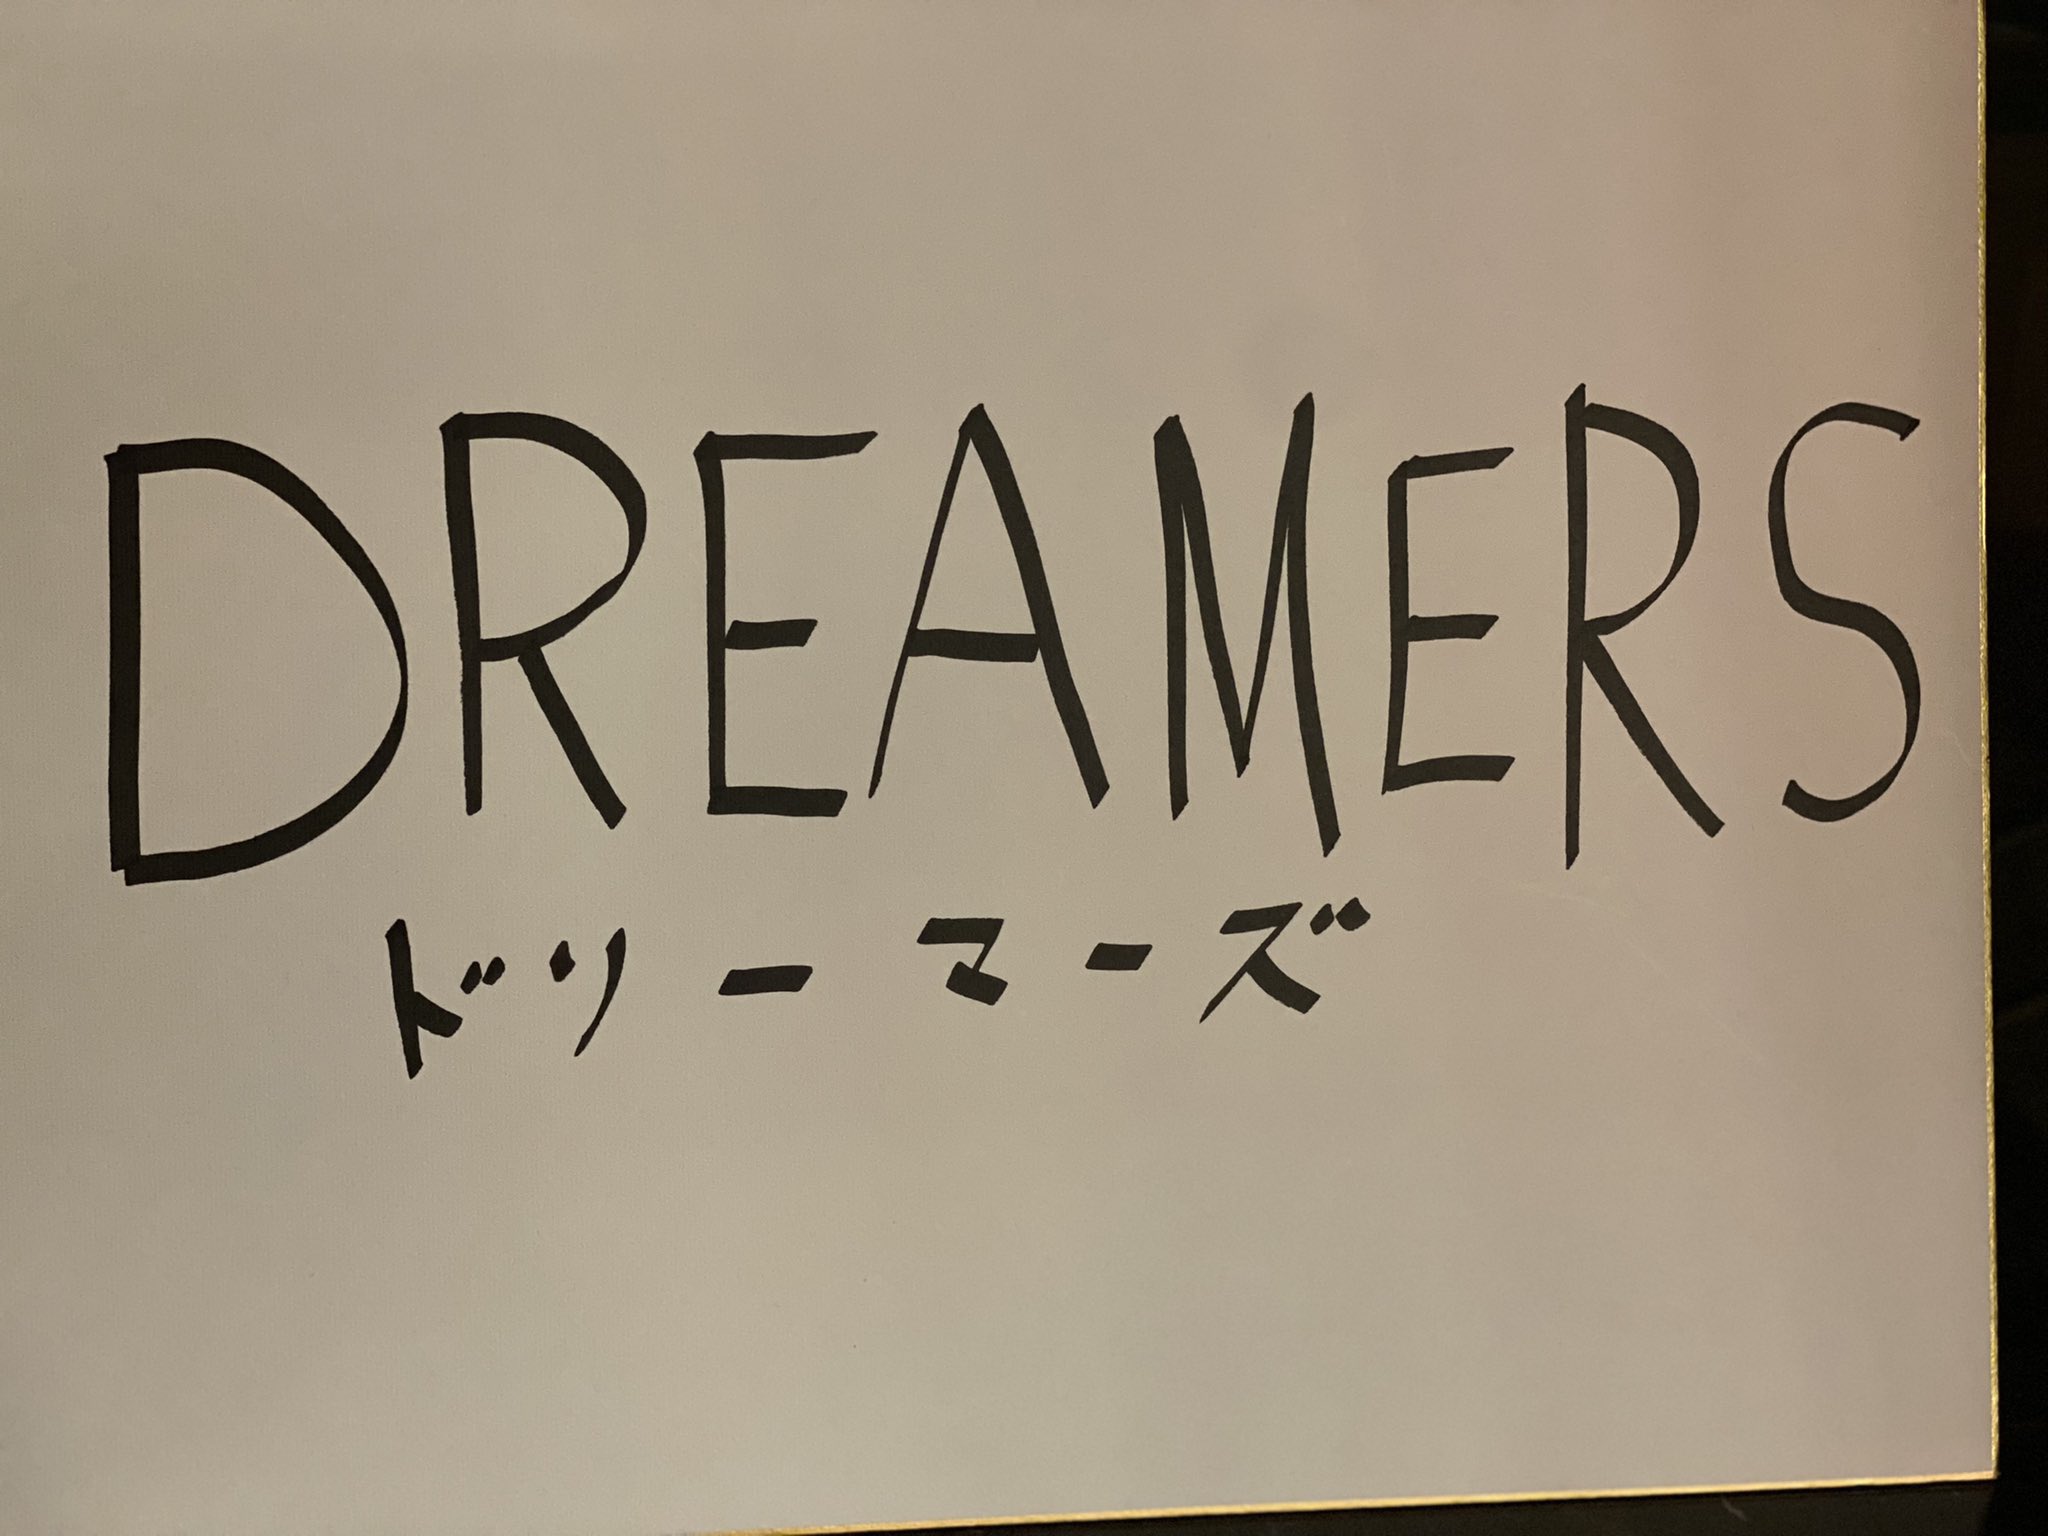 DREAMERS
ドリーマーズ